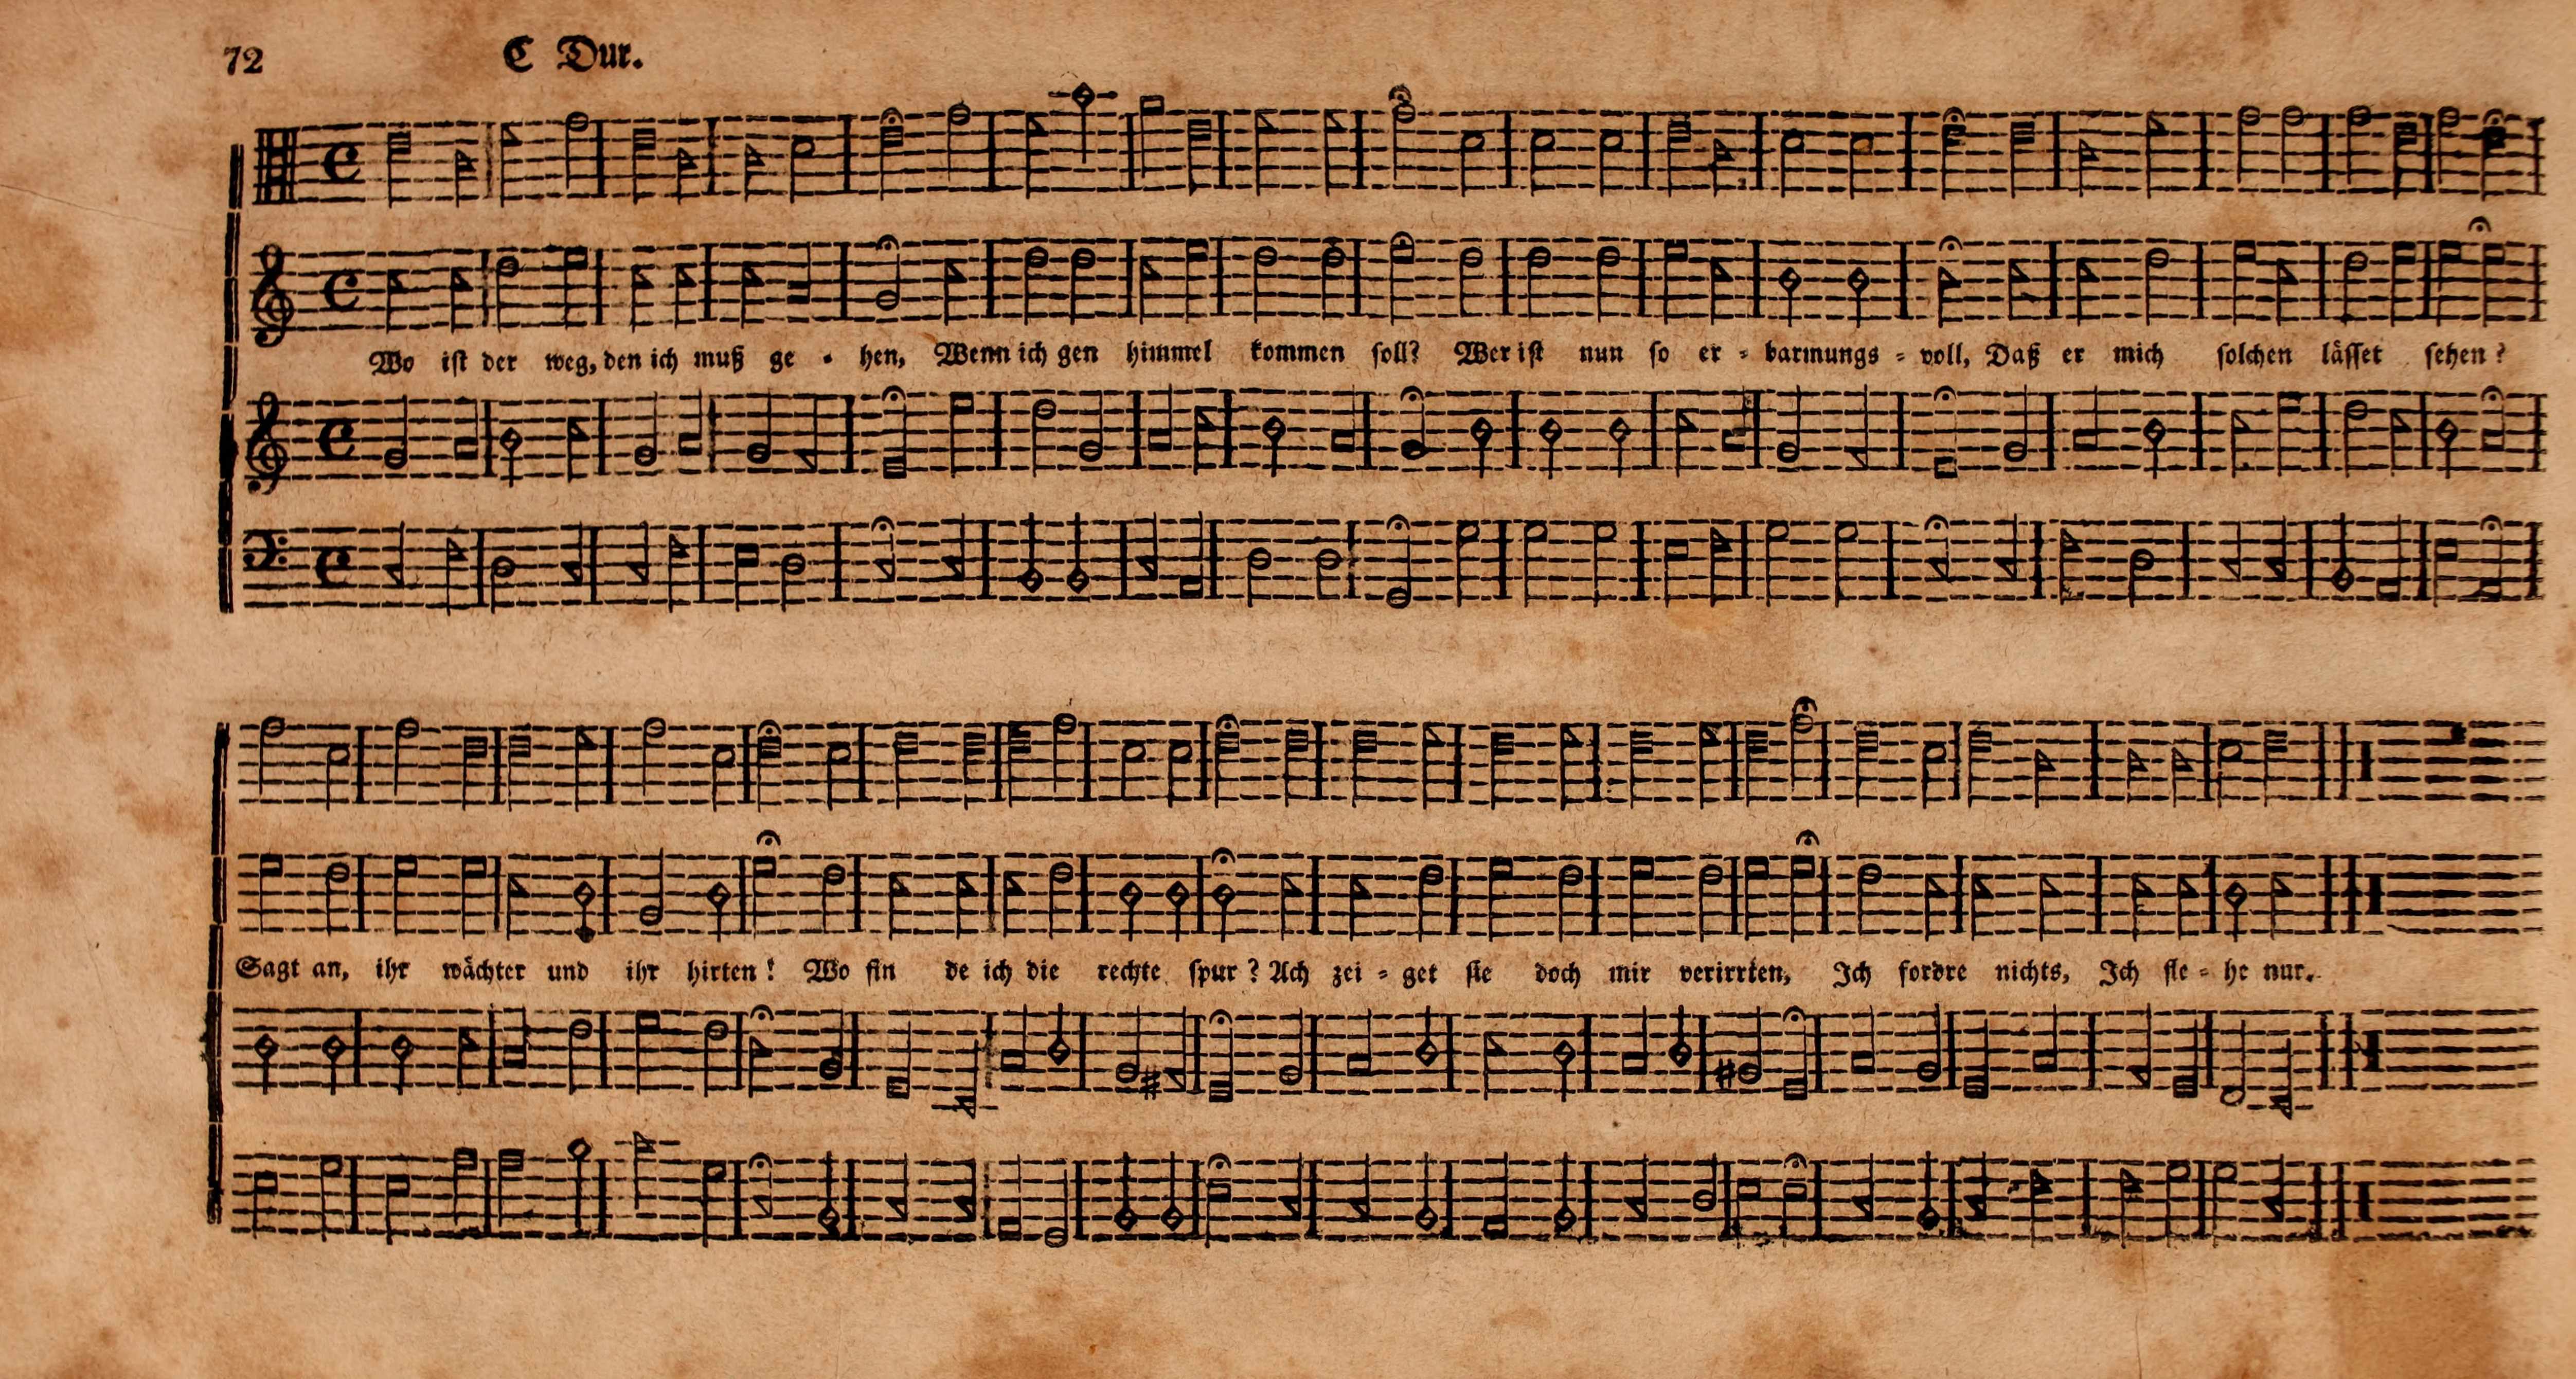 72 C Dur.
Wo ist der weg, den ich muß ge - hen, Wenn ich gen himmel kommen soll? Wer ist nun so er - barmungs - voll, Daß er mich solchen lässet sehen?
Sagt an, ihr wächter und ihr hirten! Wo fin de ich die rechte spur? Ach zei - get sie doch mir verirrten, Ich fordre nichts, Ich fle - he nur.